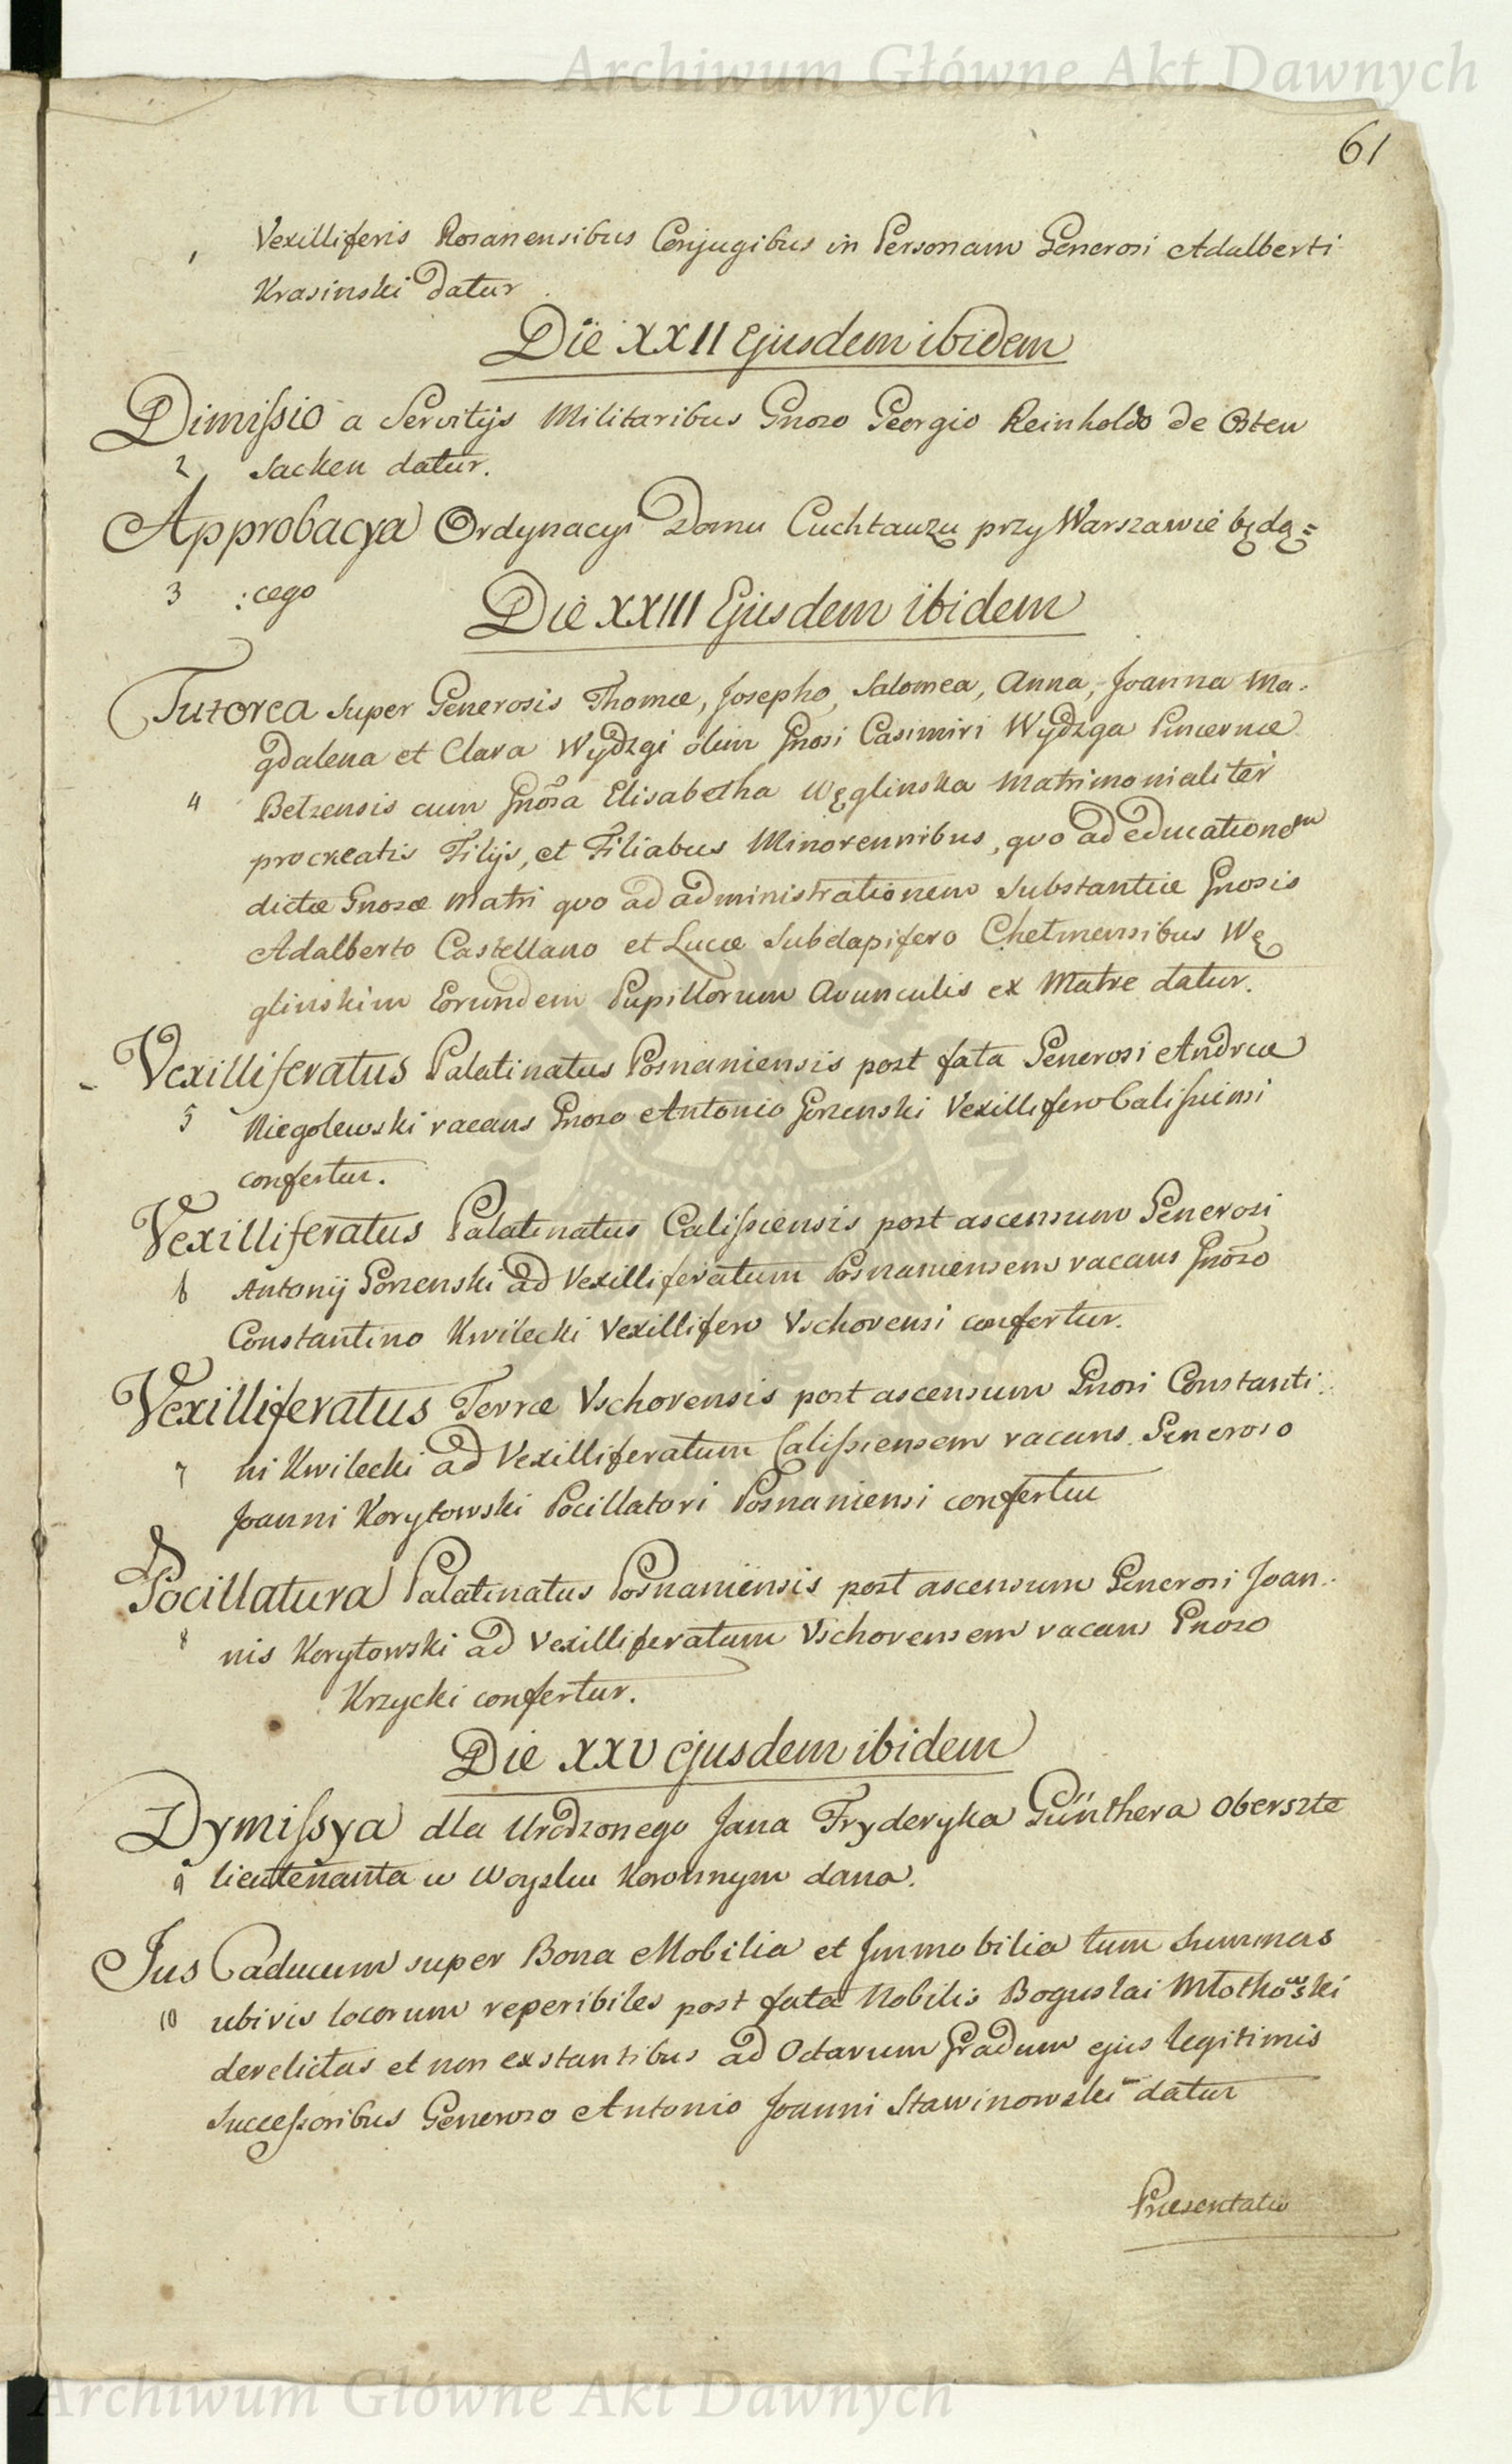 Archiwum Główne Akt Dawnych
61
1 Vexilliferis Rosanensibus Conjugibus in Personam Generosi Adalberti
Krasinski datur
Die XXII Ejusdem ibidem
Dimissio a Servitijs Militaribus Gnoso Georgio Reinholdo de Osten
2 Sacken datur.
Approbacya Ordynacyi Domu Cuchtauzu przy Warszawie będą=
3 :cego
Die XXIII Ejusdem ibidem
Tutorea super Generosis Thomæ, Josepho, Salomea, Anna, Joanna Ma-
gdalena et Clara Wydzgi olim Gnosi Casimiri Wydzga Pincernæ
4 Belzensis cum Gnosa Elisabetha Węglinska Matrimonialiter
procreatis Filijs, et Filiabus Minorennibus, quo ad educationem
dictæ Gnosæ Matri quo ad administrationem Substantiæ Gnosis
Adalberto Castellano et Lucæ Subdapifero Chelmensibus Wę
glinskim Eorundem Pupillorum Avunculis ex Matre datur.
Vexilliferatus Palatinatus Posnaniensis post fata Generosi Andreæ
5 Niegolewski vacans Gnoso Antonio Gorzenski Vexillifero Calissiensi
confertur.
Vexilliferatus Palatinatus Calissiensis post ascensum Generosi
6 Antonij Gorzenski ad Vexilliferatum Posnaniensem vacans Gnoso
Constantino Kwilecki Vexillifero Vschovensi confertur.
Vexilliferatus Terræ Vschovensis post ascensum Gnosi Constanti:
7 ni Kwilecki ad Vexilliferatum Calissiensem vacans Generoso
Joanni Korytowski Pocillatori Posnaniensi confertur
Pocillatura Palatinatus Posnaniensis post ascensum Generosi Joan:
8 nis Korytowski ad Vexilliferatum Vschovensem vacans Gnoso
Krzycki confertur.
Die XXV ejusdem ibidem
Dymissya dla Urodzonego Jana Fryderyka Günthera Oberszte
9 lieutenanta w Woysku Koronnym dana.
Jus Caducum super Bona Mobilia et Immobilia tum Summas
10 ubivis locorum reperibiles post fata Nobilis Boguslai Młotkowski
derelictas et non exstantibus ad Octavum Gradum ejus legitimis
Successoribus Generoso Antonio Joanni Stawinowski datur
Præsentatio
Archiwum Główne Akt Dawnych